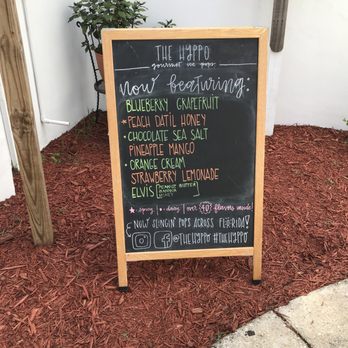 THE HYPPO
gourmet ice pops
now featuring:
BLUEBERRY GRAPEFRUIT
* PEACH DATIL HONEY
• CHOCOLATE SEA SALT
PINEAPPLE MANGO
• ORANGE CREAM
STRAWBERRY LEMONADE
ELVIS [PEANUT BUTTER
BANANA
HONEY]
* spicy | • dairy | over 40 flavors inside!
NOW SLINGIN' POPS ACROSS FLORIDA!
@THEHYPPO #THEHYPPO